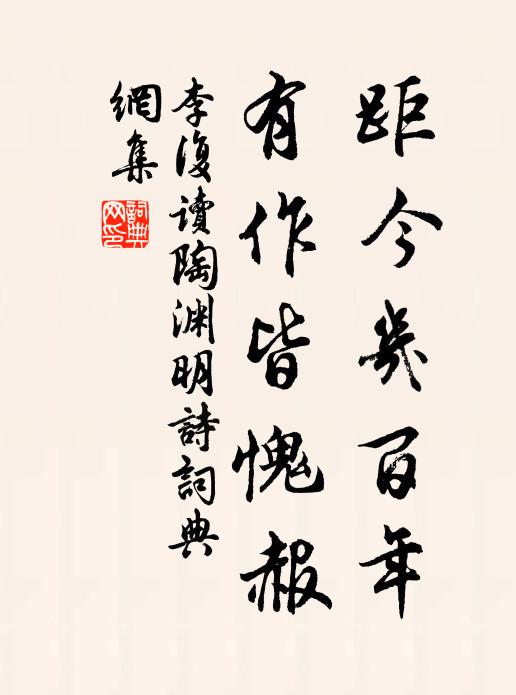 距今幾百年
有作皆愧赧
李復讀陶渊明詩詞典
網集
詞典
网印